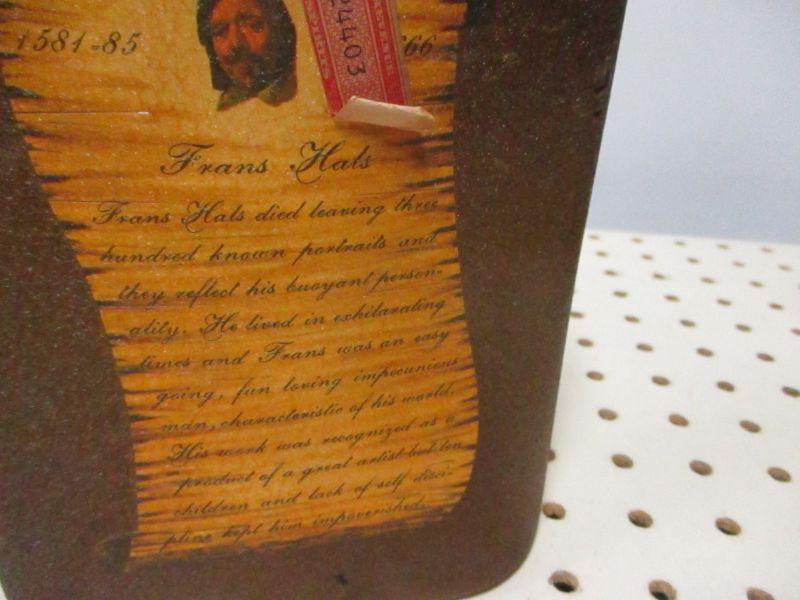 1581-85
66
24403
Frans Hals
Frans Hals died leaving three
hundred known portraits and
they reflect his buoyant person-
ality. He lived in exhilarating
times and Frans was an easy
going, fun loving impecunious
man, characteristic of his world.
His work was recognized as a
product of a great artist but ten
children and lack of self disci-
pline kept him impoverished.